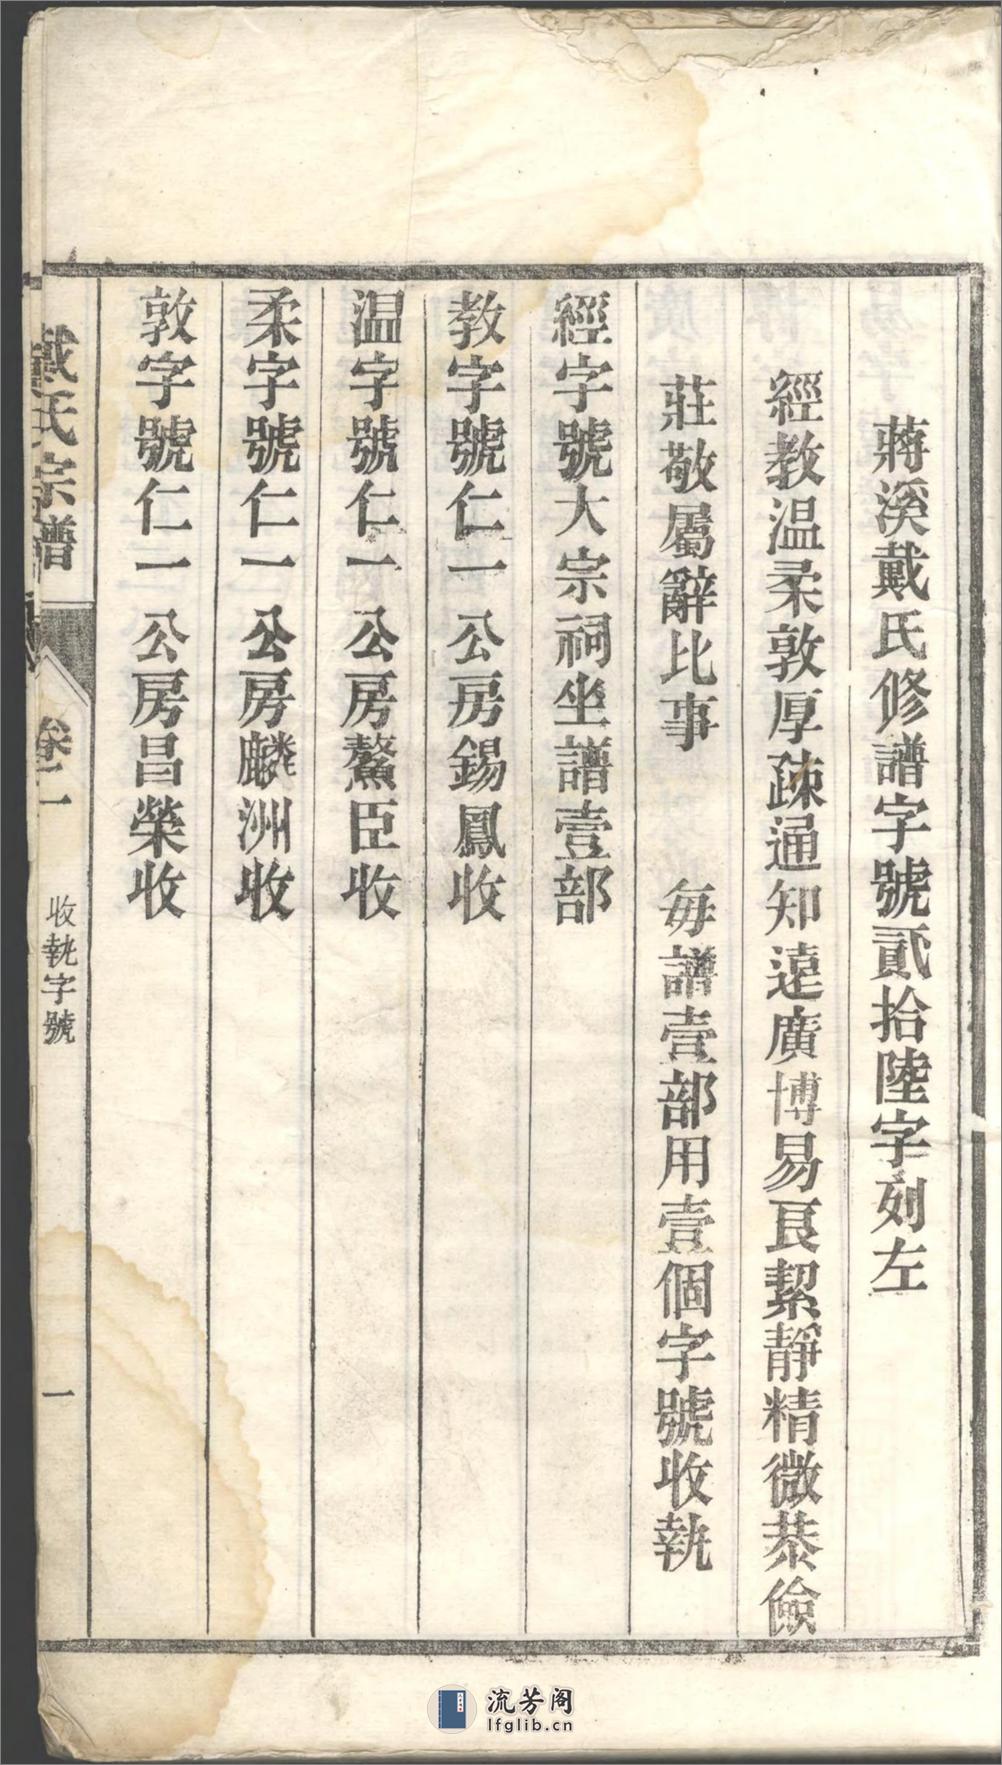 蔣溪戴氏修譜字號貳拾陸字列左
經教温柔敦厚疎通知遠廣博易良絜靜精微恭儉
莊敬屬辭比事　　每譜壹部用壹個字號收執
經字號大宗祠坐譜壹部
教字號仁一公房錫鳳收
温字號仁一公房鰲臣收
柔字號仁一公房麟洲收
敦字號仁一公房昌榮收
戴氏宗譜
卷一
收執字號
一
流芳阁
lfglib.cn